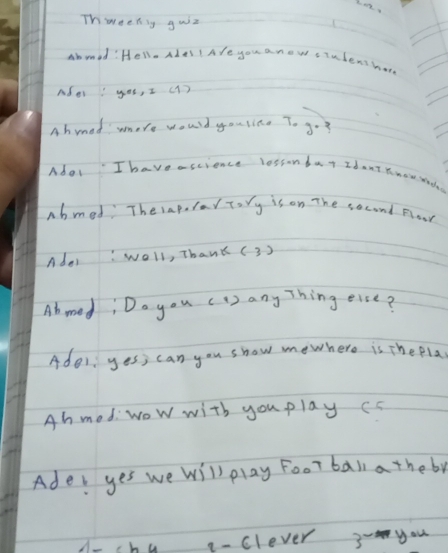 Th weekly quiz
Ahmed: Hello Adel! Are you a now student here
Adel : yes, I (1)
Ahmed: where would you like To go?
Adel : I have a science lesson but I don't know
Ahmed: The laporatory is on The second Floor
Adel : well, Thank (3)
Ahmed : Do you (4) any Thing else?
Adel: yes, can you show me where is The pla
Ahmed: wow with you play (5
Adel: yes we will play Foot ball a the
2- Clever 3- you